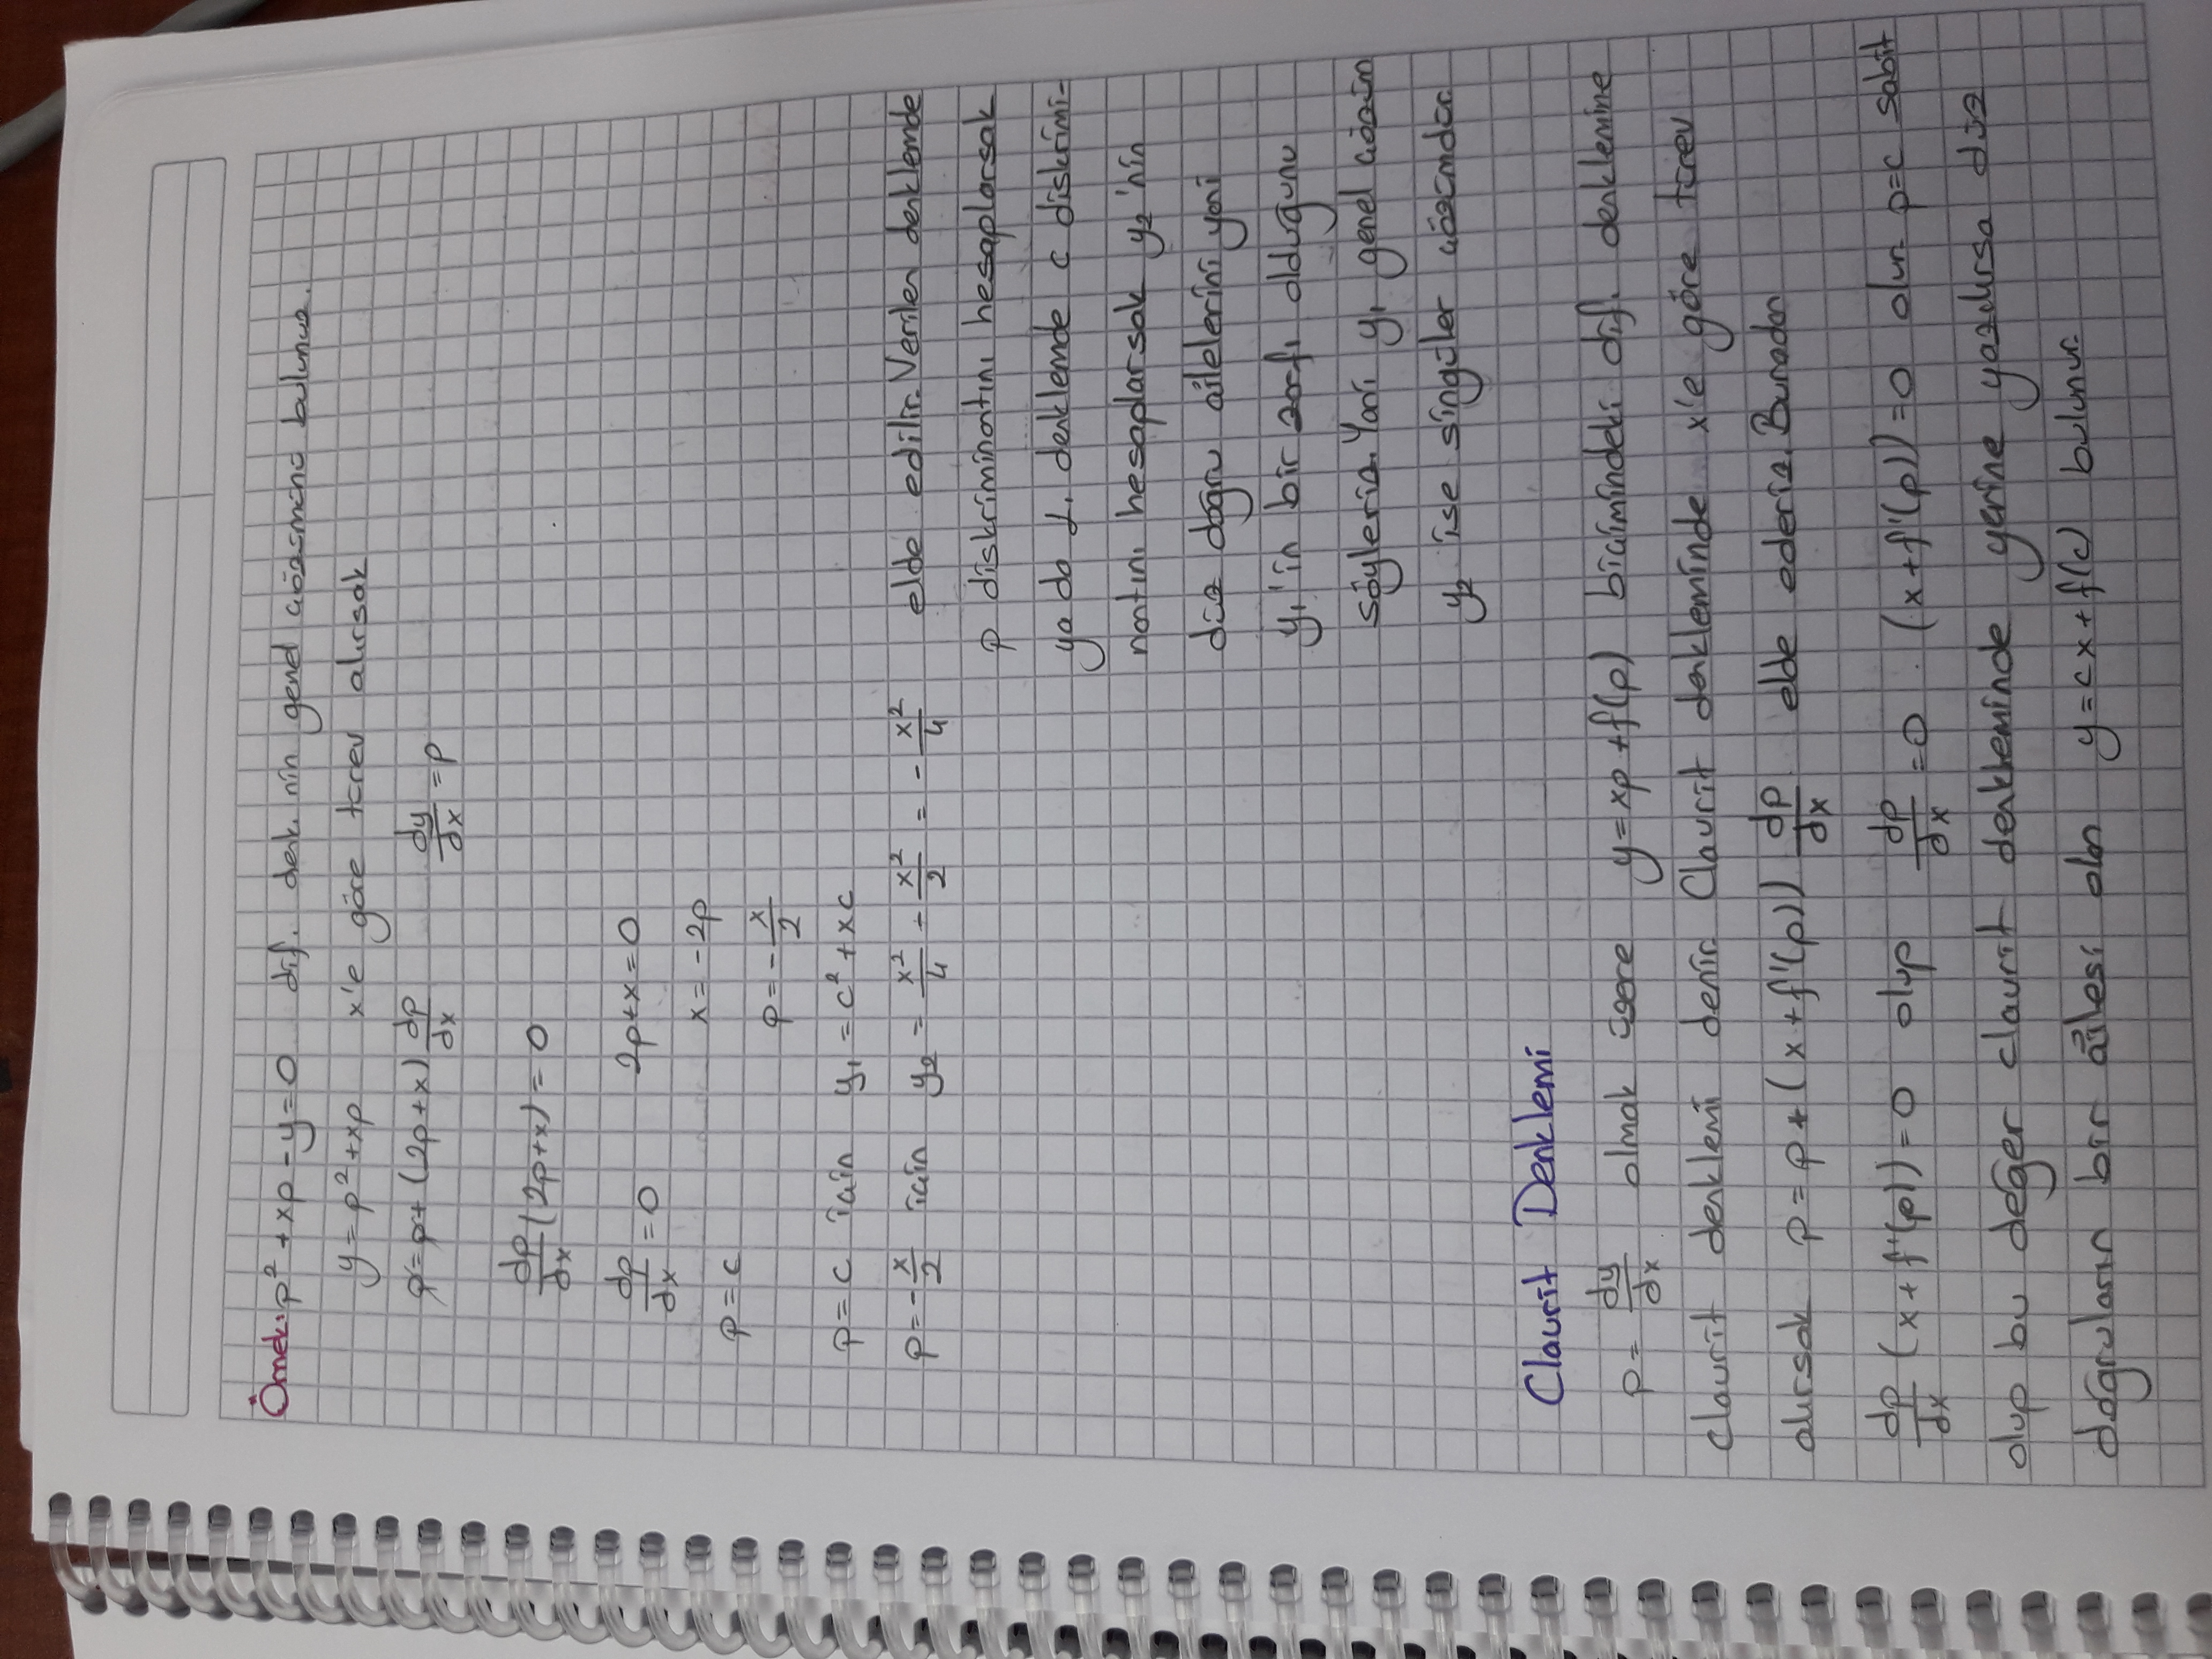 Örnek: p² + xp - y = 0 dif. denk. nin genel çözümünü bulunuz.
y = p² + xp x'e göre türev alırsak
p = p + (2p+x) dp/dx dy/dx = p
dp/dx (2p+x) = 0
dp/dx = 0 2p+x = 0
x = -2p
p = c
p = - x/2
p = c için y₁ = c² + xc
p = - x/2 için y₂ = x²/4 - x²/2 = - x²/4 elde edilir. Verilen denklemde
p diskriminantını hesaplarsak
ya da 1. denklemde c diskrimi-
nantını hesaplarsak y₂'nin
düz doğru ailelerini yani
y₁'in bir zarfı olduğunu
söyleriz. Yani y₁ genel çözüm
y₂ ise singüler çözümdür.
Claurit Denklemi
p = dy/dx olmak üzere y = xp + f(p) biçimindeki dif. denklemine
claurit denklemi denir. Claurit denkleminde x'e göre türev
alırsak p = p + (x + f'(p)) dp/dx elde ederiz. Buradan
dp/dx (x + f'(p)) = 0 olup dp/dx = 0 . (x + f'(p)) = 0 olur. p=c sabit
olup bu değer claurit denkleminde yerine yazılırsa düz
doğruların bir ailesi olan y = cx + f(c) bulunur.